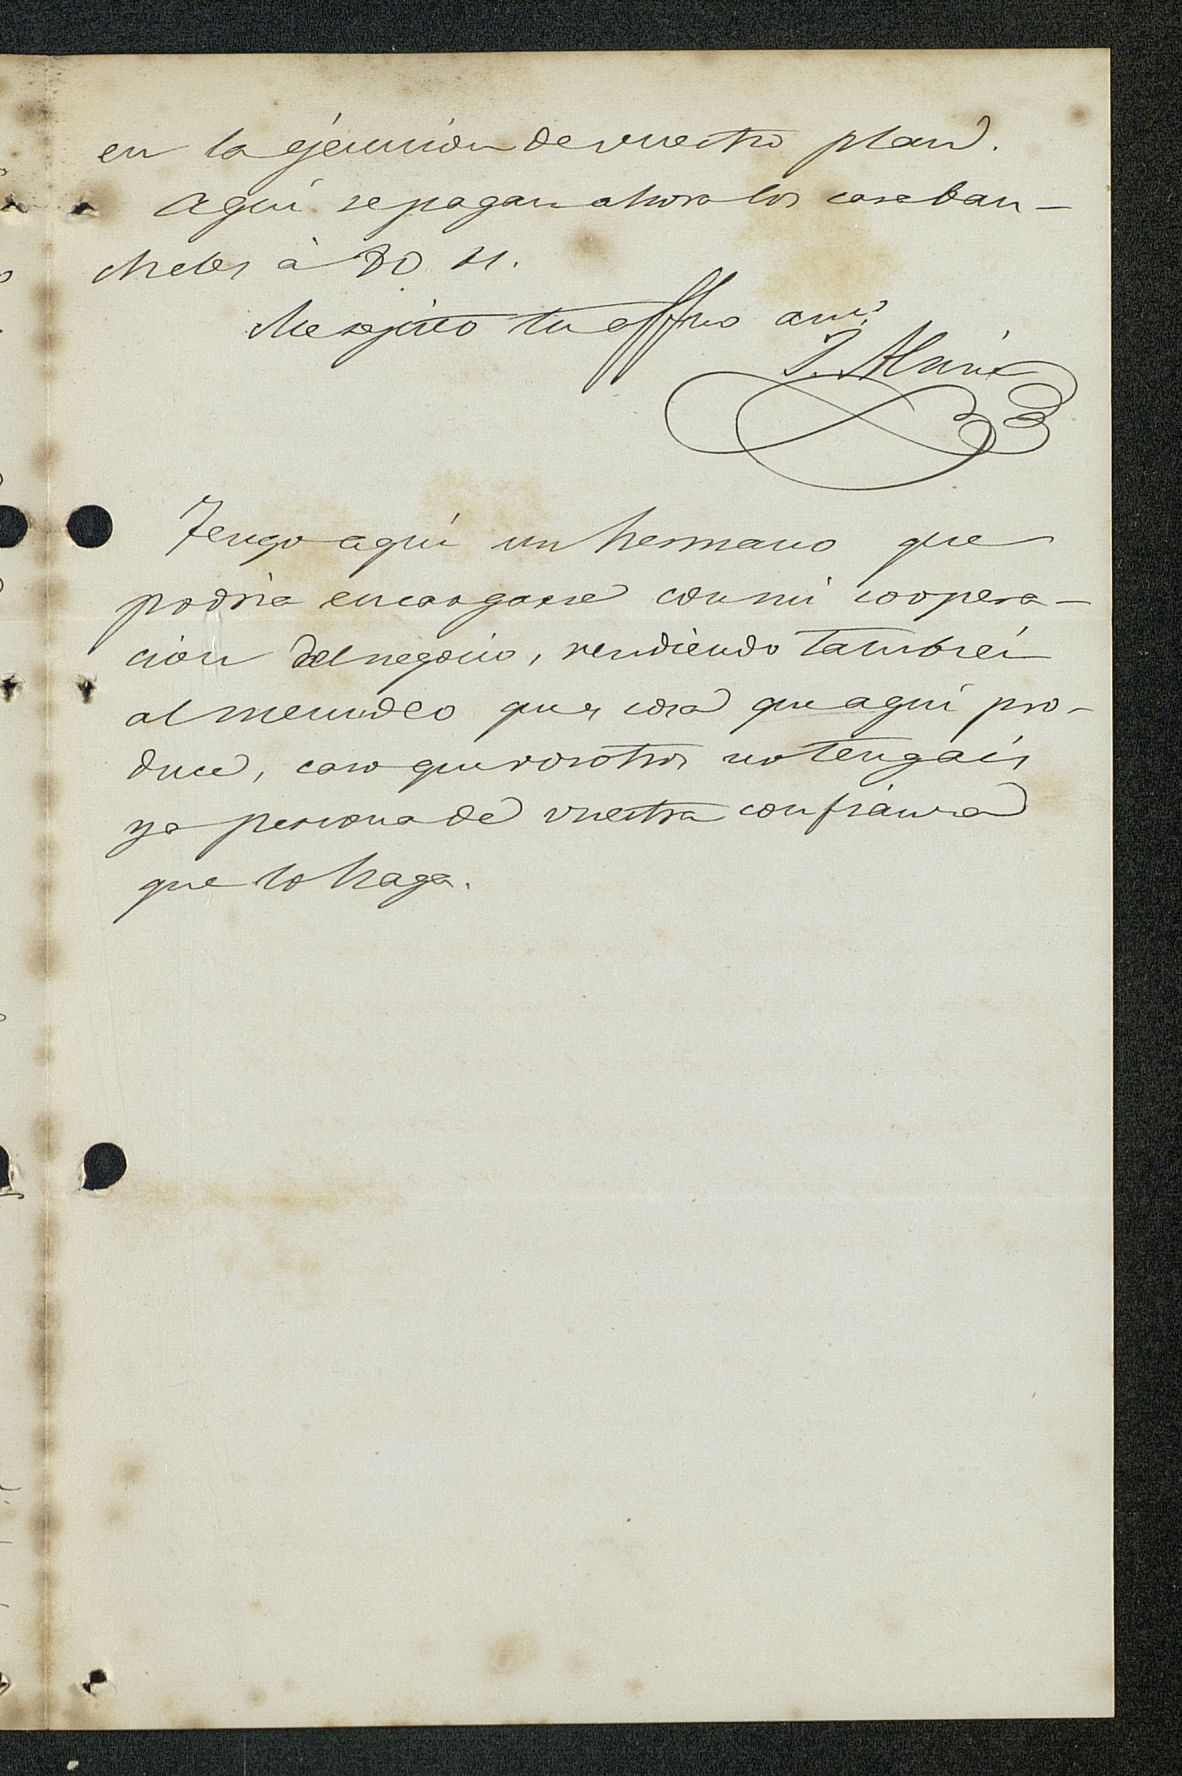 en la ejecucion de vuestro plan.
Aqui se pagan ahora los caraban-
cheles à 80 rs.
Me repito tu affmo am.º
J.
Tengo aquí un hermano que
podria encargarse con mi coopera-
cion del negocio, vendiendo tambien
al menudeo que es cosa que aquí pro-
duce, caso que vosotros no tengais
ya persona de vuestra confianza
que lo haga.